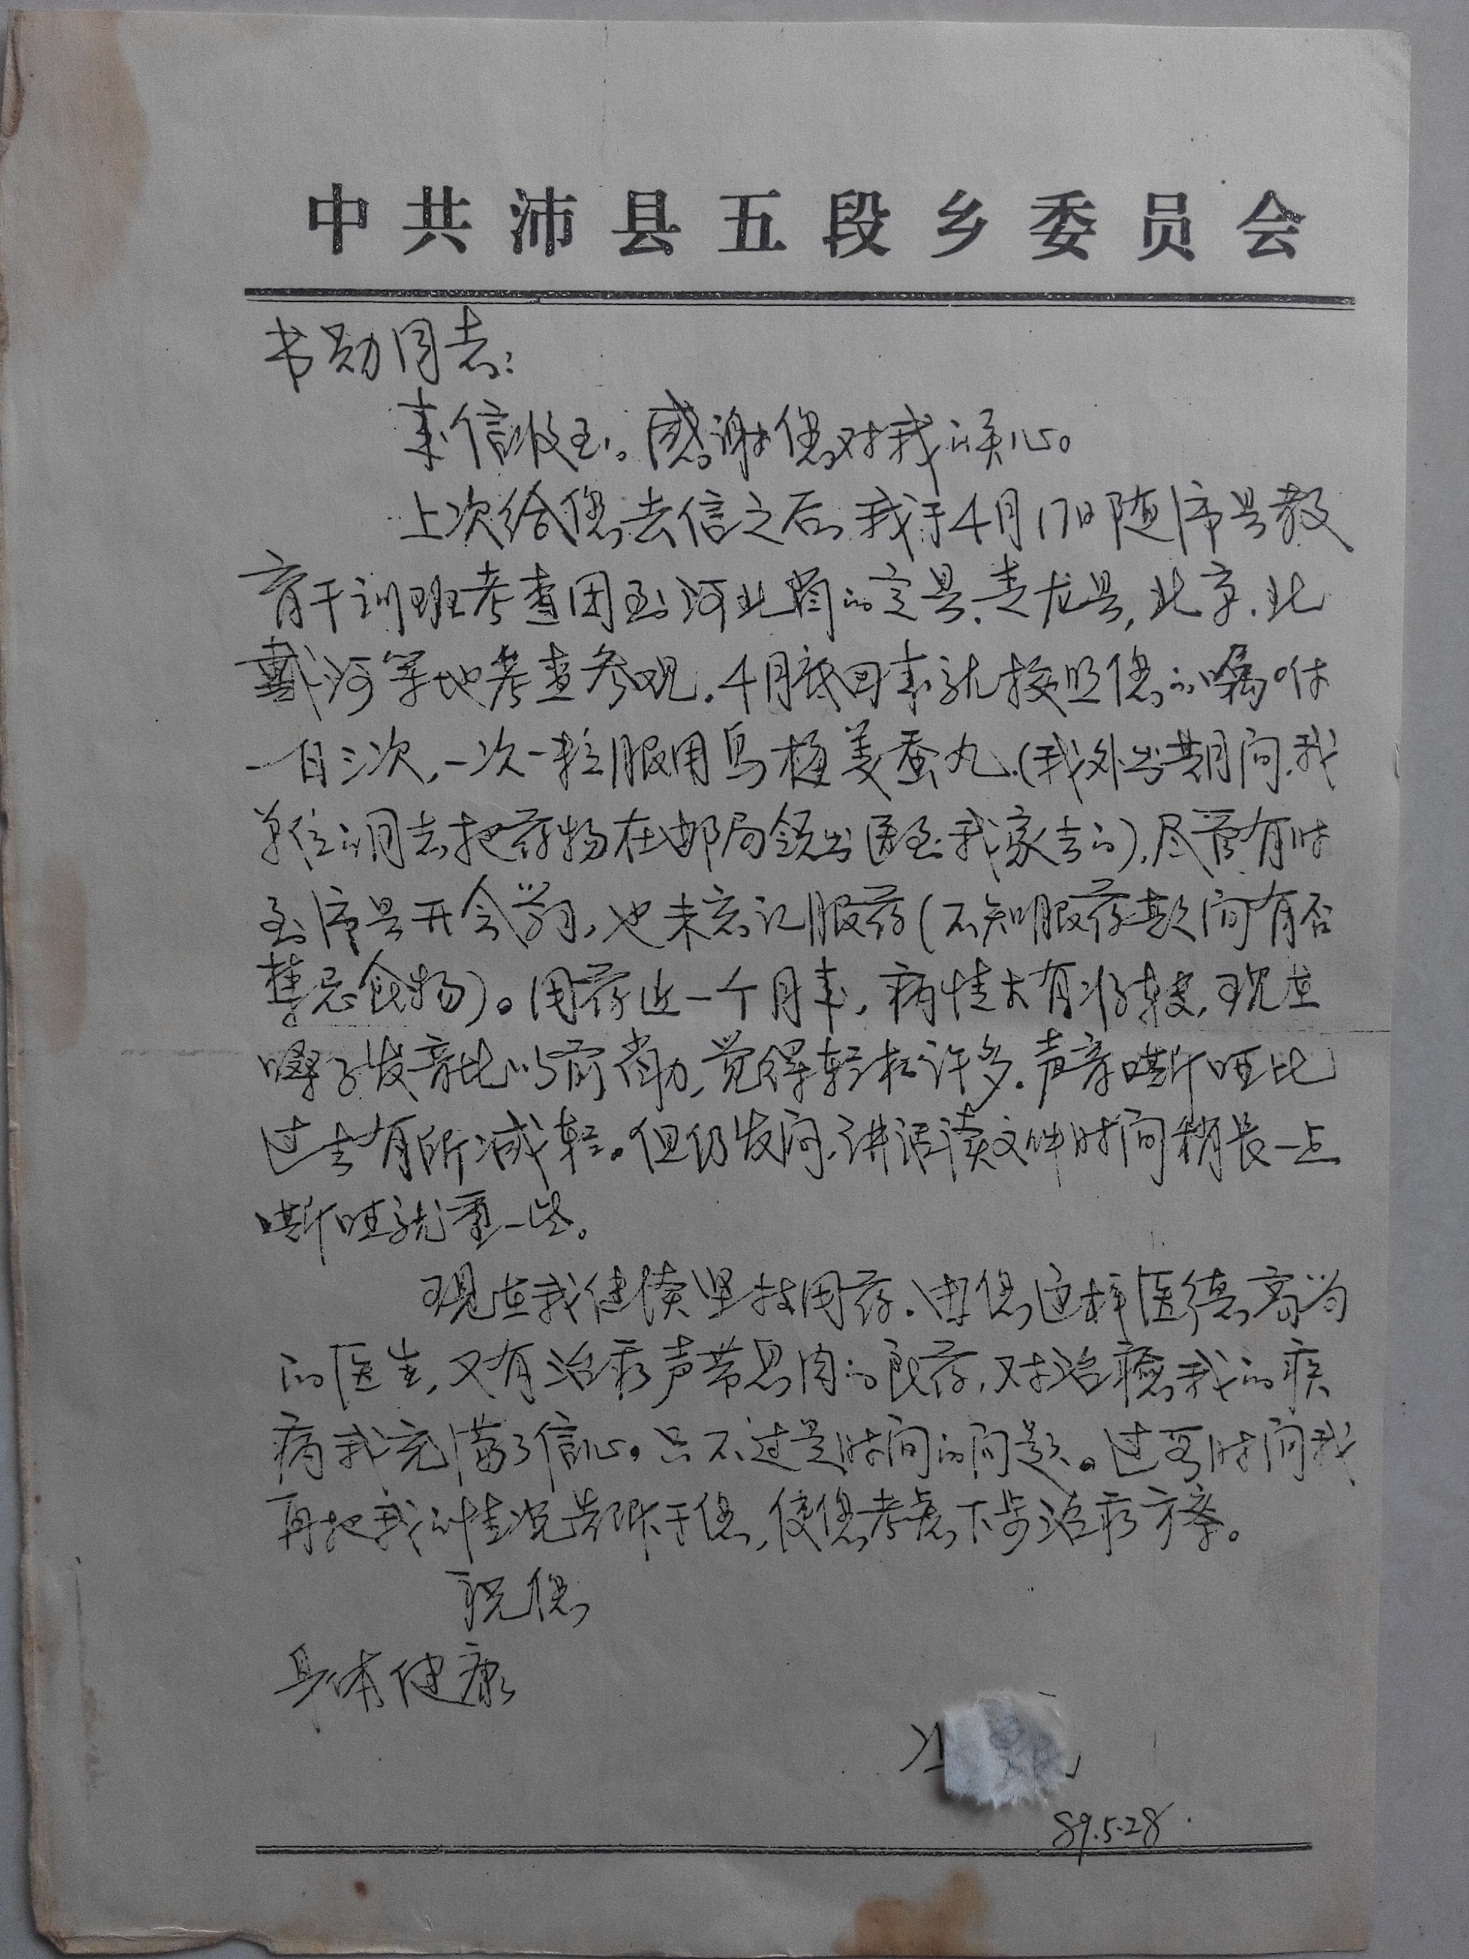 中共沛县五段乡委员会
书勋同志:
来信收到。感谢您对我的关心。
上次给您去信之后,我于4月17日随沛县教
育干训班考查团到河北省的定县、青龙县,北京、北
戴河等地考查参观。4月底回来就按照您的嘱咐
一日三次,一次一粒服用乌梅姜蚕丸。(我外出期间,我
单位的同志把药物在邮局领出送到我家去的),尽管有时
到沛县开会学习,也未忘记服药(不知服药期间有否
禁忌食物)。用药近一个月来,病情大有好转,现在
嗓子发音比以前省力,觉得轻松许多。声音嘶哑比
过去有所减轻。但仍发闷,讲话读文件时间稍长一点
嘶哑就重一些。
现在我继续坚持用药。由您这样医德高尚
的医生,又有治疗声带息肉的良药,对治癒我的疾
病我充满了信心。只不过是时间的问题。过些时间我
再把我的情况告诉于您,使您考虑下步治疗方案。
祝您
身体健康
89.5.28.